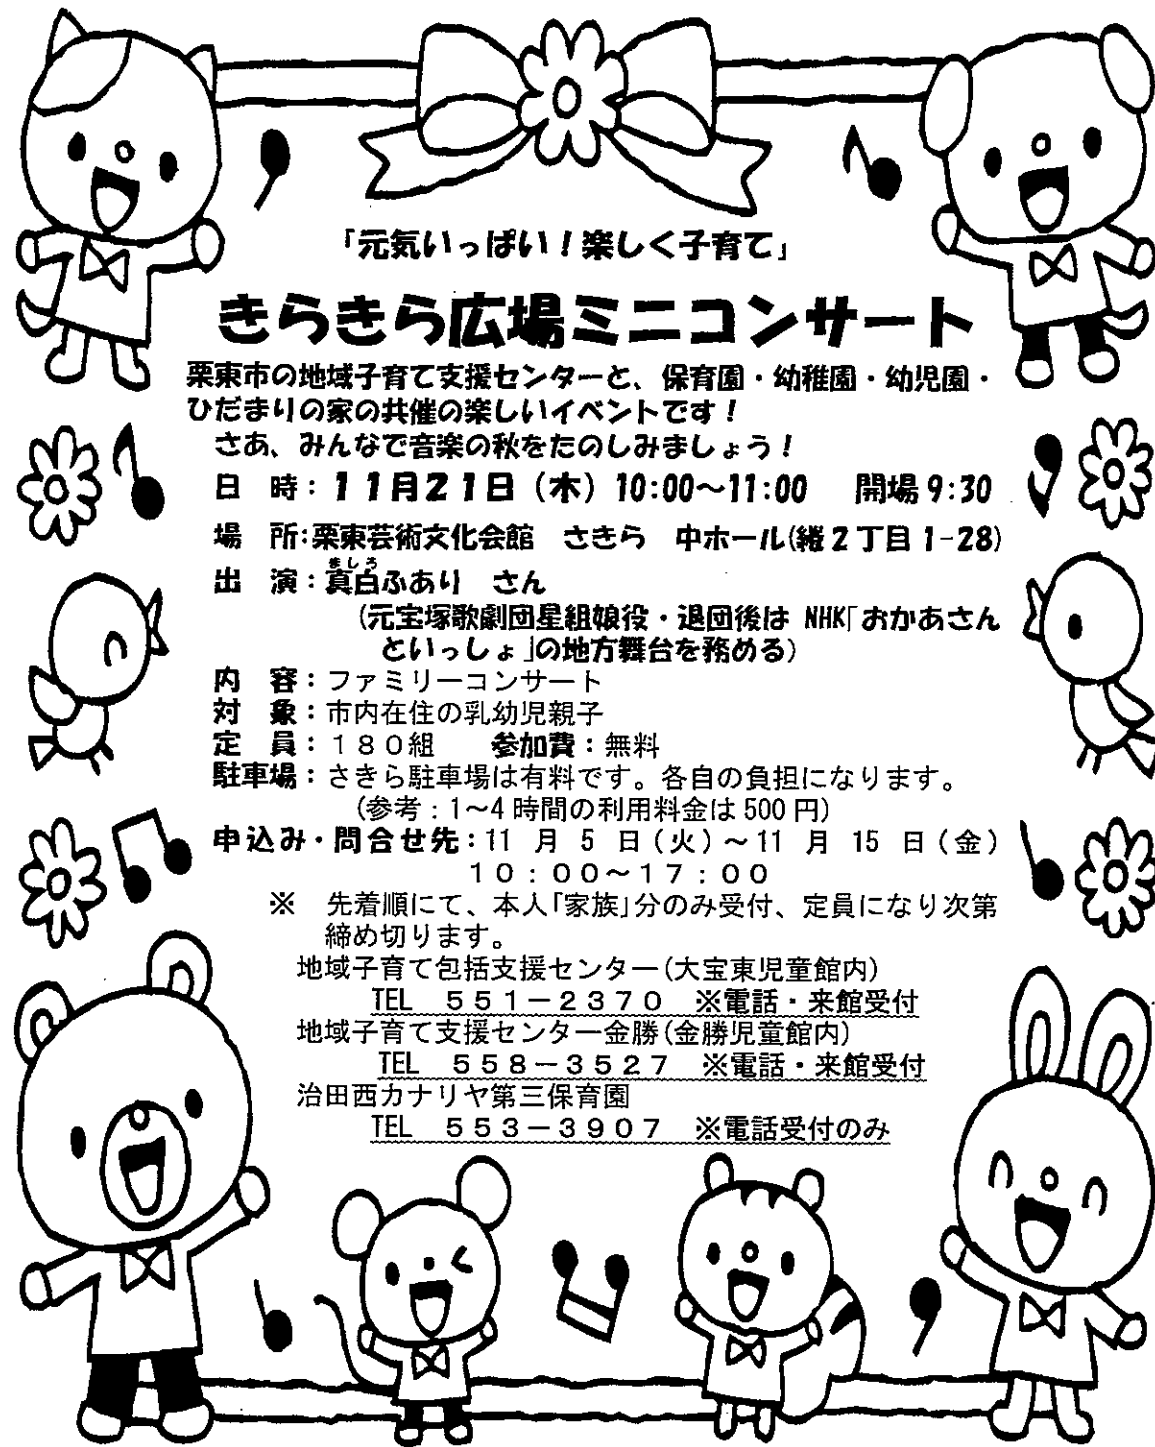 「元気いっぱい！楽しく子育て」
きらきら広場ミニコンサート
栗東市の地域子育て支援センターと、保育園・幼稚園・幼児園・
ひだまりの家の共催の楽しいイベントです！
さあ、みんなで音楽の秋をたのしみましょう！
日　時：１１月２１日（木）10:00～11:00　開場9:30
場　所：栗東芸術文化会館　さきら　中ホール(綣２丁目1-28)
ましろ
出　演：真白ふあり　さん
(元宝塚歌劇団星組娘役・退団後は NHK「おかあさん
といっしょ」の地方舞台を務める)
内　容：ファミリーコンサート
対　象：市内在住の乳幼児親子
定　員：１８０組　参加費：無料
駐車場：さきら駐車場は有料です。各自の負担になります。
(参考：1～4時間の利用料金は500円)
申込み・問合せ先：11 月 5 日(火)～11 月 15 日(金)
１０：００～１７：００
※　先着順にて、本人「家族」分のみ受付、定員になり次第
締め切ります。
地域子育て包括支援センター(大宝東児童館内)
TEL　５５１－２３７０　※電話・来館受付
地域子育て支援センター金勝(金勝児童館内)
TEL　５５８－３５２７　※電話・来館受付
治田西カナリヤ第三保育園
TEL　５５３－３９０７　※電話受付のみ